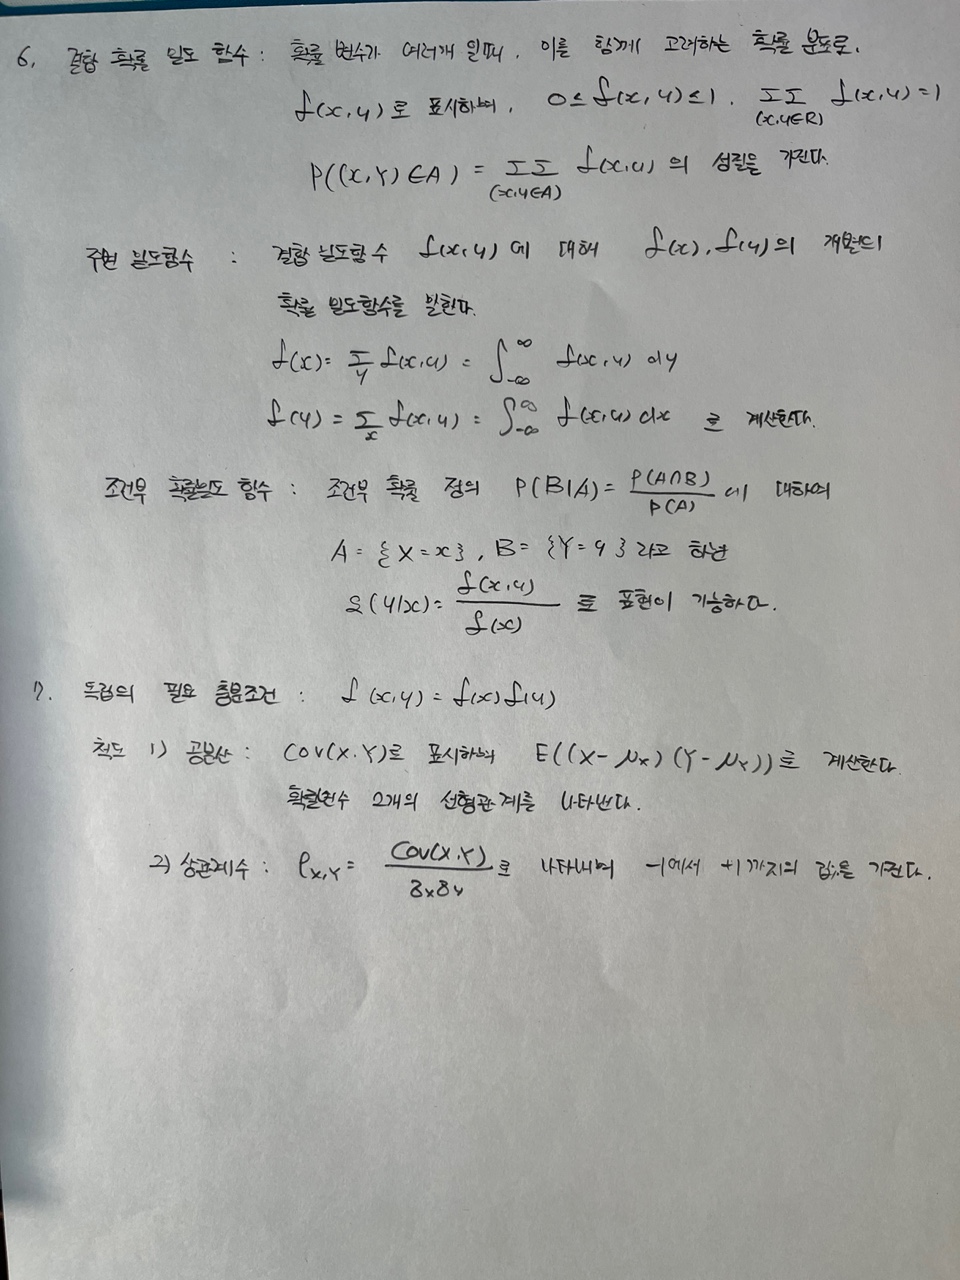 6. 결합 확률 밀도 함수 : 확률 변수가 여러개 일때, 이를 함께 고려하는 확률 분포로,
f(x,y)로 표시하며, 0≤f(x,y)≤1, ΣΣ f(x,y)=1
(x,y∈R)
P((X,Y)∈A) = ΣΣ f(x,y) 의 성질을 가진다.
(x,y∈A)
주변 밀도함수 : 결합 밀도함수 f(x,y)에 대해 f(x), f(y)의 개별의
확률 밀도함수를 말한다.
f(x)= Σ_y f(x,y) = ∫_{-∞}^{∞} f(x,y) dy
f(y) = Σ_x f(x,y) = ∫_{-∞}^{∞} f(x,y) dx 로 계산한다.
조건부 확률밀도 함수 : 조건부 확률 정의 P(B|A)= P(A∩B)/P(A) 에 대하여
A = {X=x}, B= {Y=y} 라고 하면
g(y|x)= f(x,y)/f(x) 로 표현이 가능하다.
7. 독립의 필요 충분조건 : f(x,y) = f(x)f(y)
척도 1) 공분산 : Cov(X,Y)로 표시하며 E((X-μx)(Y-μY))로 계산한다.
확률변수 2개의 선형관계를 나타낸다.
2) 상관계수 : ρX,Y = Cov(X,Y)/δxδy 로 나타내며 -1에서 +1까지의 값을 가진다.